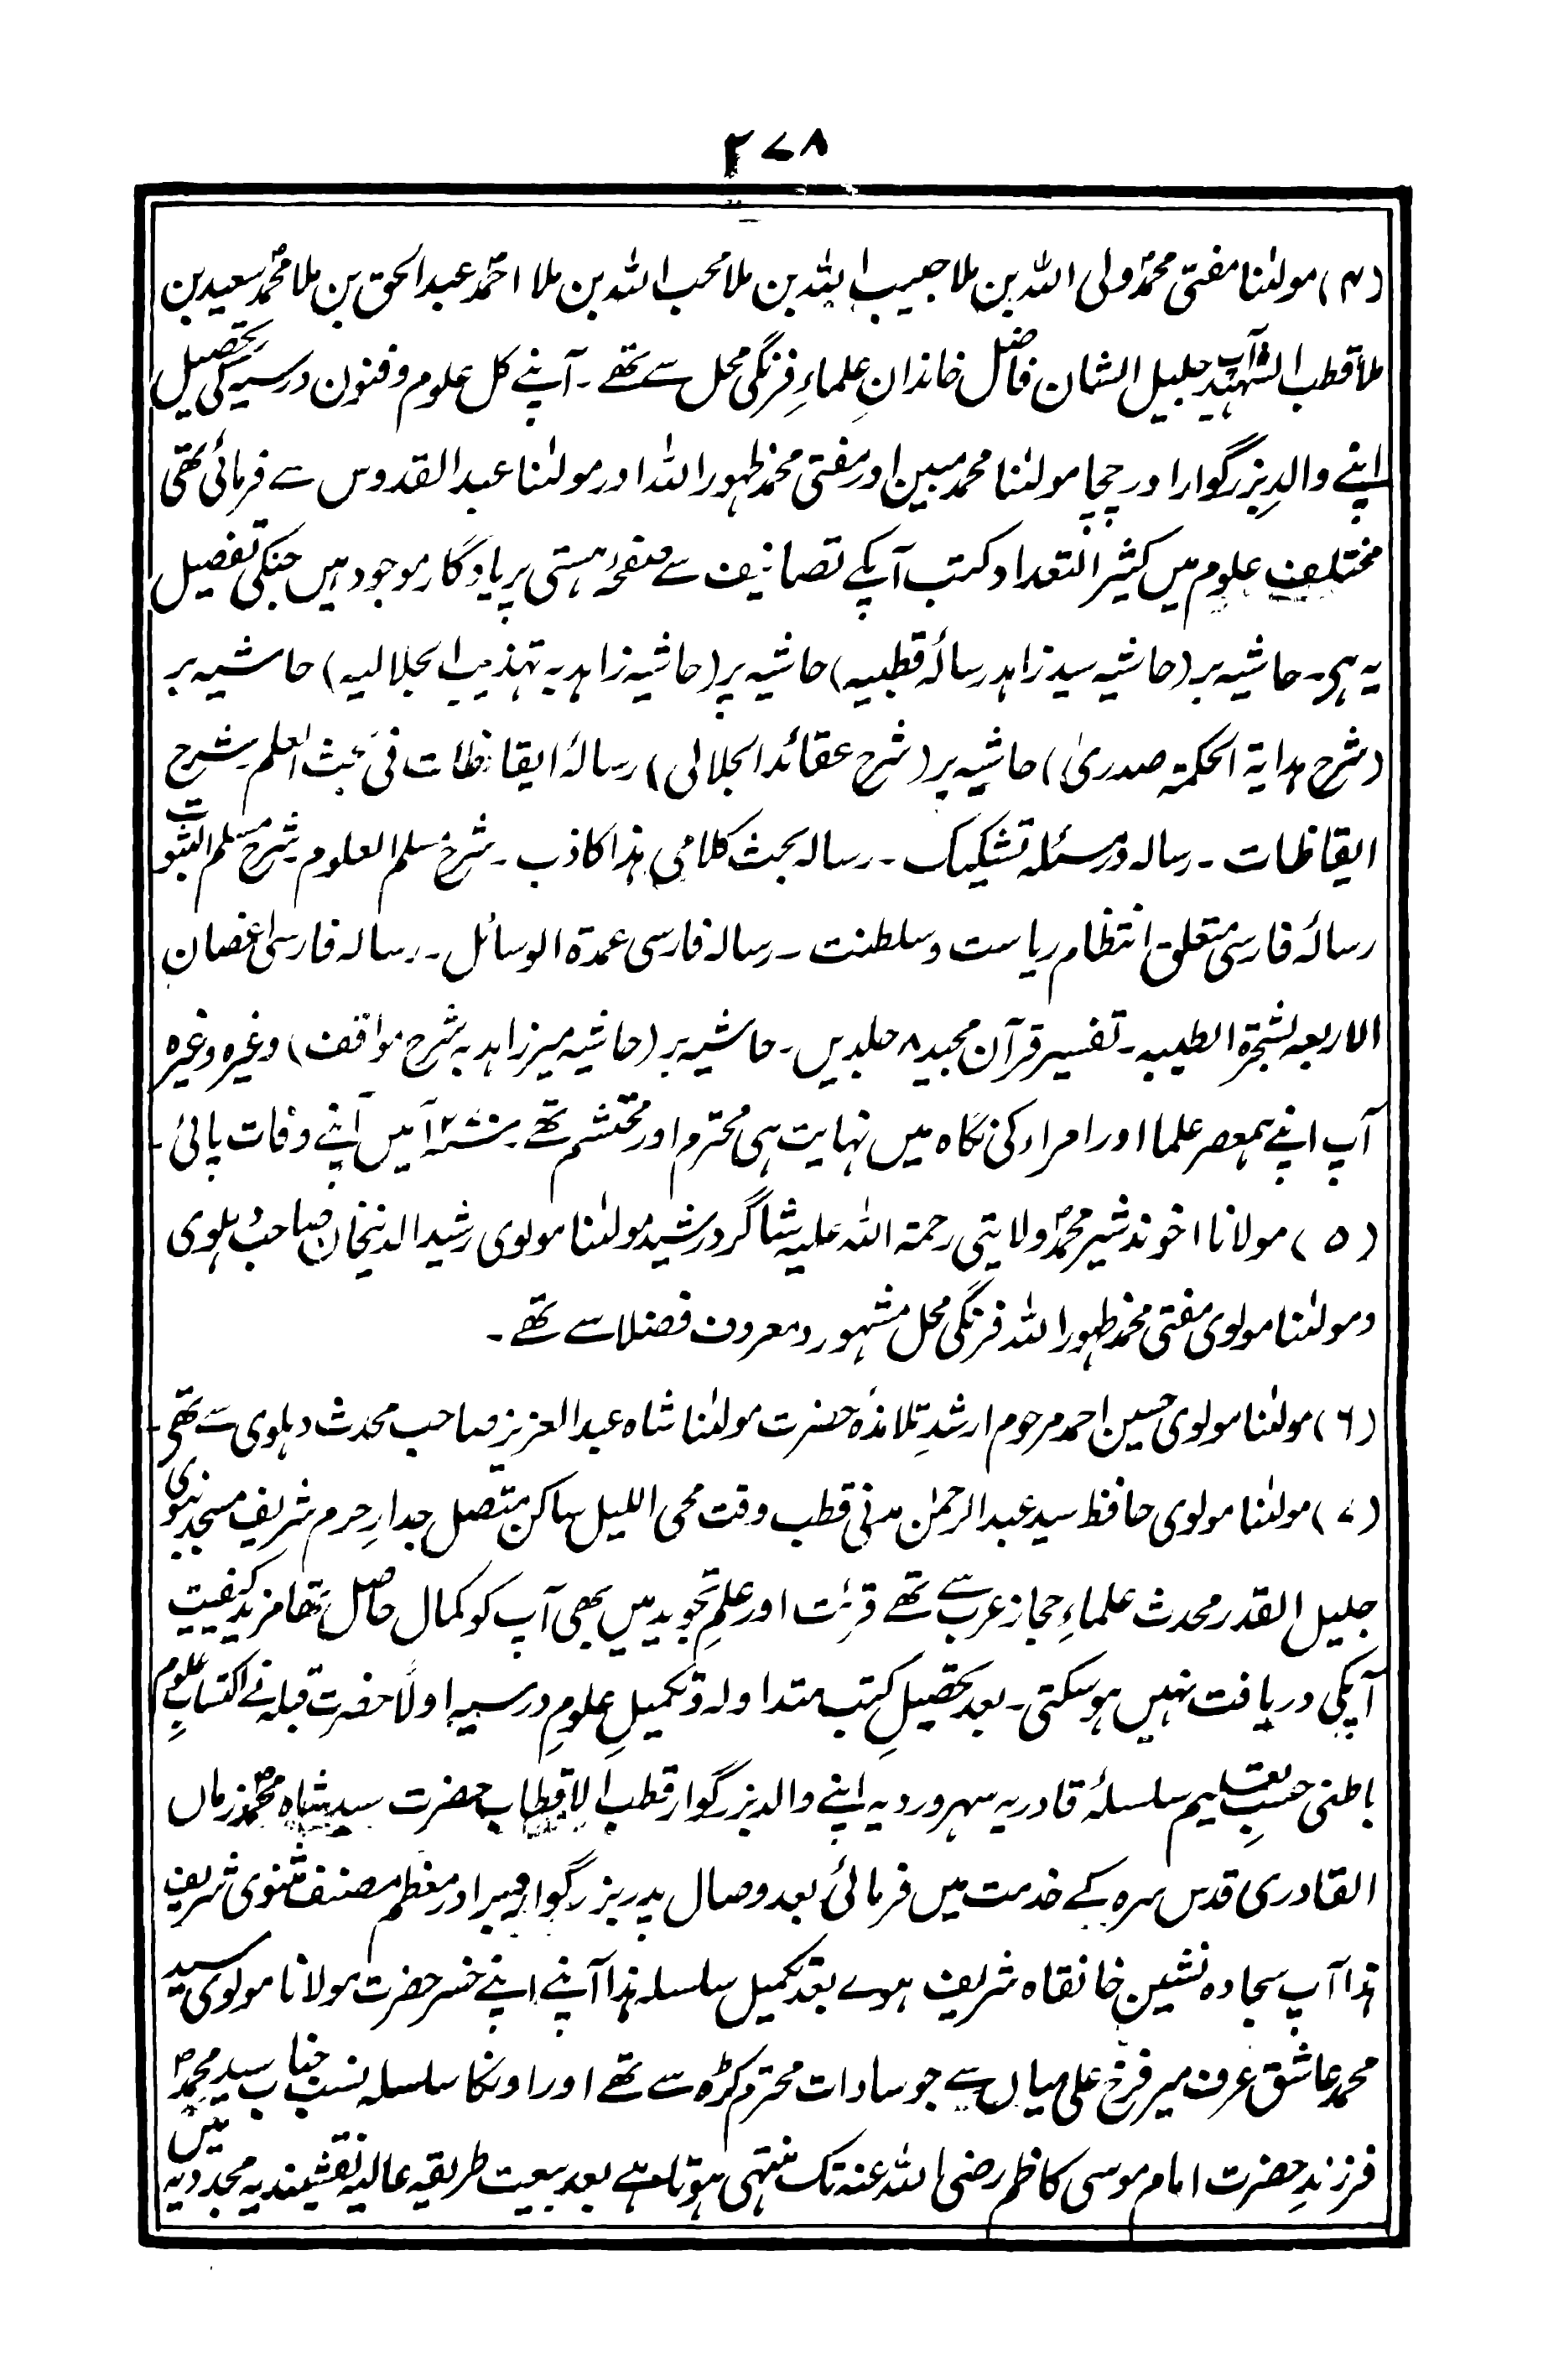 ۲۷۸
(۴) مولٰنا مفتی محمد ولی اللہ بن ملا حبیب اللہ بن ملا محب اللہ بن ملا احمد عبد الحق بن ملا محمد سعید بن
ملا قطب الشہید آپ جلیل الشان فاضل خاندانِ علماءِ فرنگی محل سے تھے ۔ آپنے کل علوم و فنون درسیہ کی تحصیل
اپنے والدِ بزرگوار اور چچا مولٰنا محمد مبین اور مفتی محمد ظہور اللہ اور مولٰنا عبد القدوس سے فرمائی تھی
مختلف علوم میں کثیر التعداد کتب آپکے تصانیف سے صفحۂ ہستی پر یادگار موجود ہیں جنکی تفصیل
یہ ہی ۔ حاشیہ بر (حاشیہ سید زاہد رسالۂ قطبیہ) حاشیہ پر (حاشیہ زاہدیہ تہذیب الجلالیہ) حاشیہ بر
(شرح ہدایۃ الحکمۃ صدریٰ) حاشیہ بر (شرح عقائد الجلالی) رسالۂ ایقاظات فی بحث العلم ۔ شرح
ایقاظات ۔ رسالہ در مسئلہ تشکیک ۔ رسالہ بحث کلامی ہذا کاذب ۔ شرح سلم العلوم ۔ شرح مسلم الثبوت
رسالۂ فارسی متعلق انتظام ریاست و سلطنت ۔ رسالہ فارسی عمدۃ الوسائل ۔ رسالہ فارسی اغصان
الاربعہ لشجرۃ الطیبہ ۔ تفسیر قرآن مجید ۸ جلدیں ۔ حاشیہ بر (حاشیہ میرزاہد بہ شرح مواقف) وغیرہ وغیرہ
آپ اپنے ہمعصر علما اور امراء کی نگاہ میں نہایت ہی محترم اور محتشم تھے ۔ میں آپنے وفات پائی ۔
(۵) مولانا اخوند شیر محمد ولایتی رحمۃ اللہ علیہ شاگرد رشید مولٰنا مولوی رشید الدینخان صاحب دہلوی
و مولٰنا مولوی مفتی محمد ظہور اللہ فرنگی محل مشہور و معروف فضلا سے تھے ۔
(۶) مولٰنا مولوی حسین احمد مرحوم ارشدِ تلامذہ حضرت مولٰنا شاہ عبد العزیز صاحب محدث دہلوی سے تھے ۔
(۷) مولٰنا مولوی حافظ سید عبد الرحمٰن مدنی قطب وقت محی اللیل ساکن متصل جدارِ حرم شریف مسجد نبوی
جلیل القدر محدث علماءِ حجاز عرب سے تھے قرئت اور علمِ تجوید میں بھی آپ کو کمال حاصل تھا مزید کیفیت
آپکی دریافت نہیں ہو سکتی ۔ بعد تحصیلِ کتب متداولہ و تکمیلِ علومِ درسیہ اولاً حضرت قبلہ نے اکتسابِ علوم
باطنی حسبِ تعلیم سلسلۂ قادریہ سہروردیہ اپنے والد بزرگوار قطب الاقطاب حضرت سید شاہ محمد زماں
القادری قدس سرہ کے خدمت میں فرمائی بعد وصال پدر بزرگوار و برادر معظم مصنف مثنوی شریف
ہذا آپ سجادہ نشین خانقاہ شریف ہوے بعد تکمیل سلسلہ ہذا آپنے اپنے خسر حضرت مولانا مولوی سید
محمد عاشق عرف میر فرخ علی میاں سے جو سادات محترم کڑہ سے تھے اور اونکا سلسلہ نسب جناب سید محمد
فرزندِ حضرت امام موسی کاظم رضی اللہ عنہ تک منتہی ہوتا ہے بعد بیعت طریقہ عالیہ نقشبندیہ مجددیہ میں